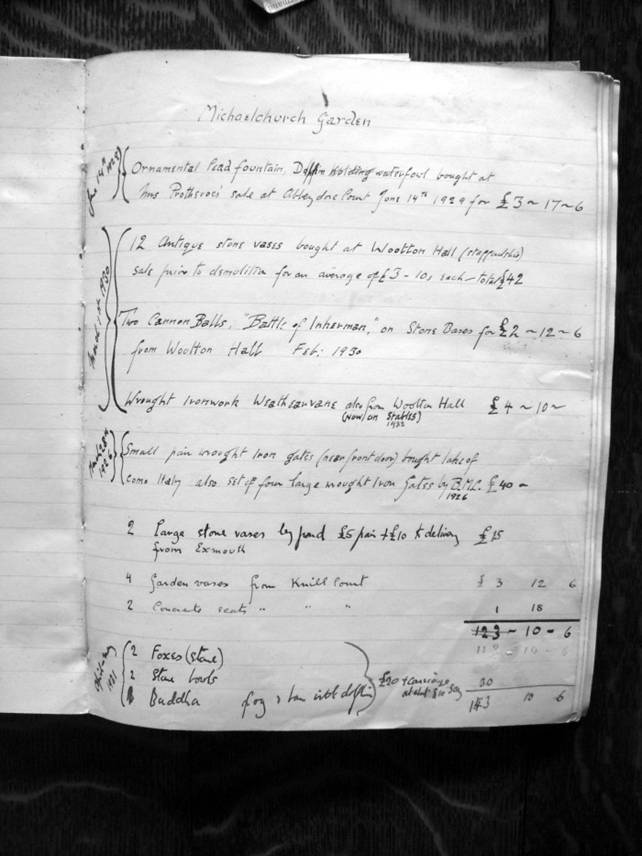 Michaelchurch Garden
Ornamental lead fountain, Dolphin holding waterfowl bought at
Mrs Protheroes' sale at Abbeydore Court June 14th 1929 for £3 ~ 17 ~ 6
12 Antique stone vases bought at Wootton Hall (Staffordshire)
sale prior to demolition for an average of £3 - 10s each - total £42
Two Cannon Balls, "Battle of Inkerman," on Stone Bases for £2 ~ 12 ~ 6
from Wootton Hall Feb: 1930
Wrought Ironwork Weathervane also from Wootton Hall £4 ~ 10 ~
(now on Stables)
1932
Small pair wrought Iron gates (near front door) bought lake of
Como Italy also set of four large wrought Iron Gates by B.M.L. £40 -
1926
2 large stone vases by pond £5 pair + £10 to delivery £15
from Exmouth
4 Garden vases from Knill Court £ 3 12 6
2 Concrete seats " " " 1 18
123 - 10 - 6
30
2 Foxes (stone)
2 Stone bowls
Buddha
£20 + carriage
143 10 6
1930
1926
1931